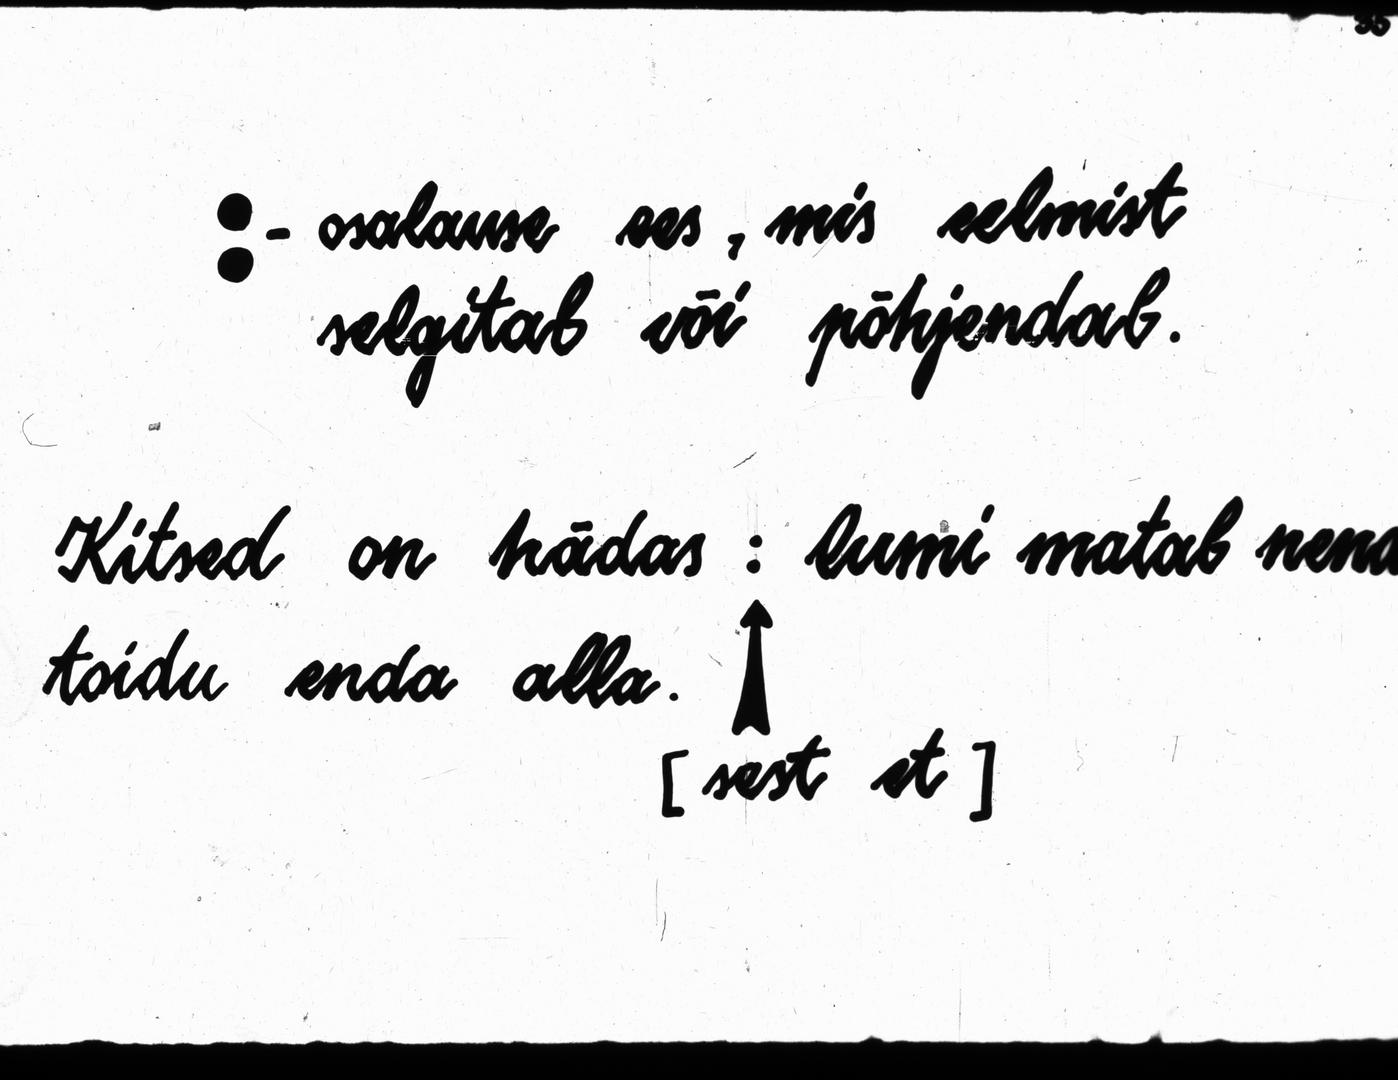 : - osalause ees, mis eelmist
selgitab või põhjendab.
Kitsed on hädas : lumi matab
toidu enda alla.
[sest et]